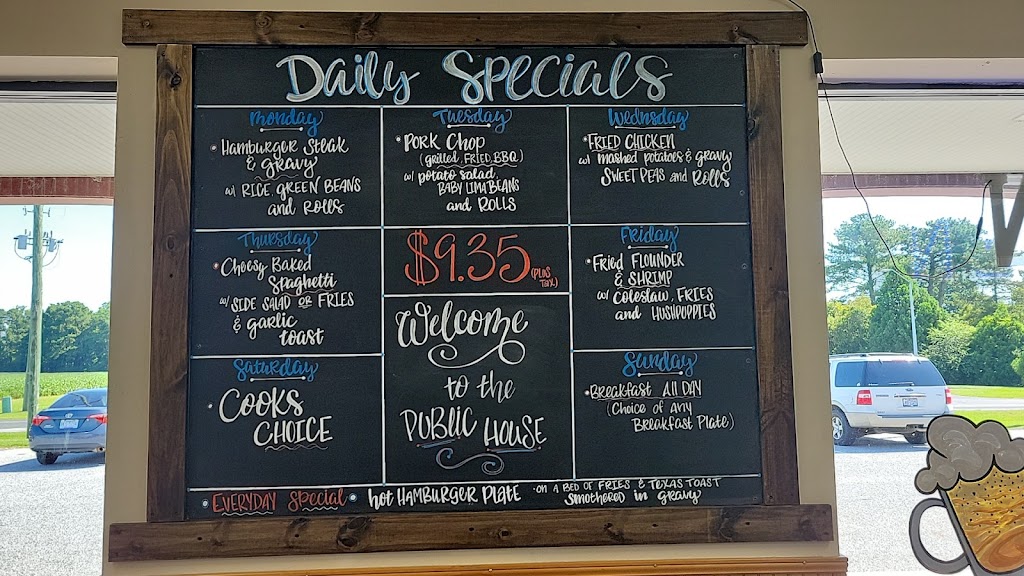 Daily Specials
Monday
Hamburger Steak
& gravy
w/ RICE, GREEN BEANS
and ROLLS
Tuesday
PORK CHOP
(grilled, FRIED, BBQ)
w/ potato salad,
BABY LIMA BEANS
and ROLLS
Wednsday
FRIED CHICKEN
w/ mashed potatoes & gravy
SWEET PEAS and ROLLS
Thursday
Cheesy Baked
Spaghetti
w/ SIDE SALAD OR FRIES
& garlic
toast
$9.35 (PLUS
TAX)
Friday
Fried FLOUNDER
& SHRIMP
w/ coleslaw, FRIES
and HUSHPUPPIES
Saturday
COOKS
CHOICE
Welcome
to the
PUBLIC HOUSE
Sunday
Breakfast All DAY
(Choice of Any
Breakfast Plate)
EVERYDAY Special
hot HAMBURGER PLATE
ON A BED OF FRIES & TEXAS TOAST
SMOTHERED in gravy